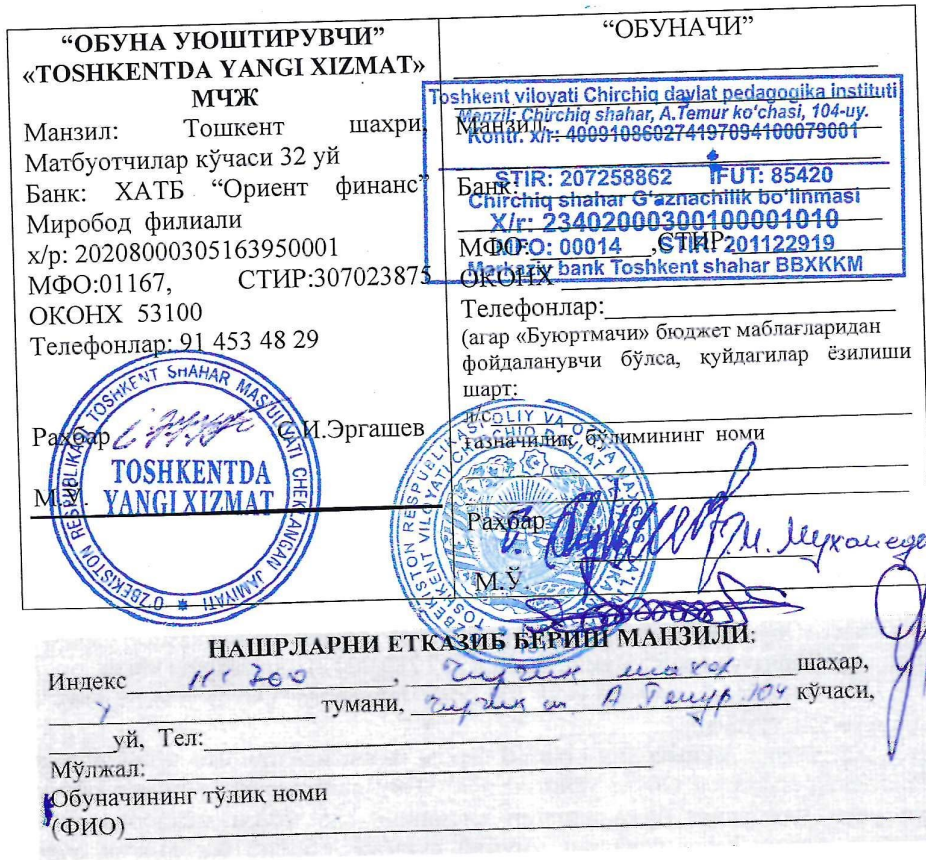 “ОБУНА УЮШТИРУВЧИ”
«TOSHKENTDA YANGI XIZMAT»
МЧЖ
Манзил: Тошкент шахри,
Матбуотчилар кўчаси 32 уй
Банк: ХАТБ “Ориент финанс”
Миробод филиали
х/р: 20208000305163950001
МФО:01167, СТИР:307023875
ОКОНХ 53100
Телефонлар: 91 453 48 29
Раҳбар С.И.Эргашев
М.Ў.
O‘ZBEKISTON RESPUBLIKASI TOSHKENT SHAHAR MAS’ULIYATI CHEKLANGAN JAMIYATI
TOSHKENTDA
YANGI XIZMAT
“ОБУНАЧИ”
Toshkent viloyati Chirchiq davlat pedagogika instituti
Manzil: Chirchiq shahar, A.Temur ko‘chasi, 104-uy.
Kontr. x/r: 400910860274197094100079001
STIR: 207258862 IFUT: 85420
Chirchiq shahar G‘aznachilik bo‘linmasi
X/r: 23402000300100001010
MFO: 00014 STIR: 201122919
Markaziy bank Toshkent shahar BBXKKM
Манзил:
Банк:
МФО: ,СТИР:
ОКОНХ
Телефонлар:
(агар «Буюртмачи» бюджет маблағларидан
фойдаланувчи бўлса, қуйдагилар ёзилиши
шарт:
л/с
ғазначилик бўлимининг номи
Раҳбар
М.Ў.
НАШРЛАРНИ ЕТКАЗИБ БЕРИШ МАНЗИЛИ:
Индекс , Чирчик шаҳар,
тумани, Чирчик ш А Темур 104 кўчаси,
уй, Тел:
Мўлжал:
Обуначининг тўлиқ номи
(ФИО)